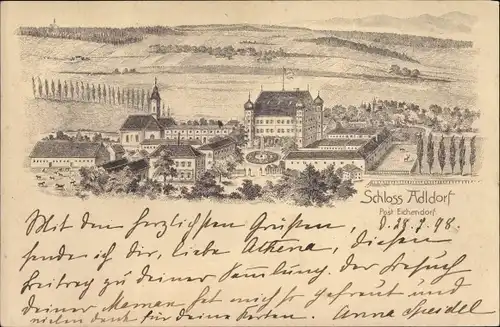 Schloss Adldorf
Post Eichendorf.
Mit den herzlichsten Grüßen, d. 28.7.98.
sende ich dir, liebe Athena, diesen
Beitrag zu deiner Sammlung. Der Besuch
deiner Maman hat mich so gefreut und
vielen dank für deine Karten. Anna Speidel